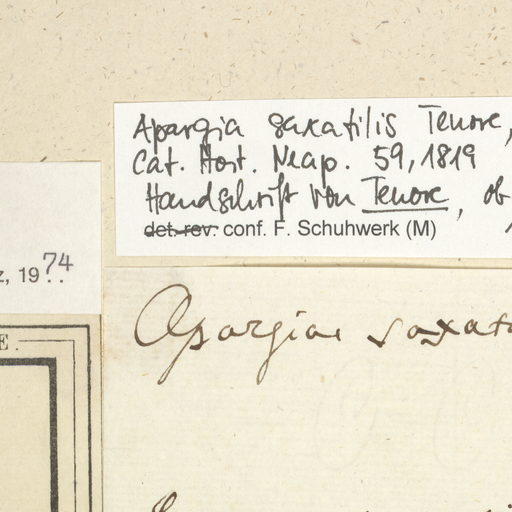 Apargia saxatilis Tenore,
Cat. Hort. Neap. 59, 1819
Handschrift von Tenore, ob
det. rev. conf. F. Schuhwerk (M)
z, 19 74
E.
Apargia saxat